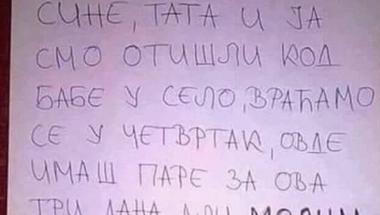 СИНЕ, ТАТА И ЈА
СМО ОТИШЛИ КОД
БАБЕ У СЕЛО, ВРАЋАМО
СЕ У ЧЕТВРТАК, ОВДЕ
ИМАШ ПАРЕ ЗА ОВА
ТРИ ДАНА АЛИ МОЛИМ